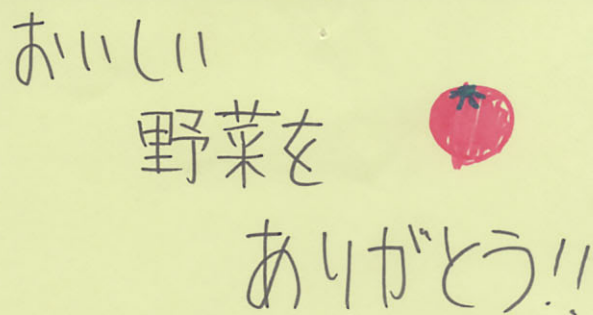 おいしい
野菜を
ありがとう!!